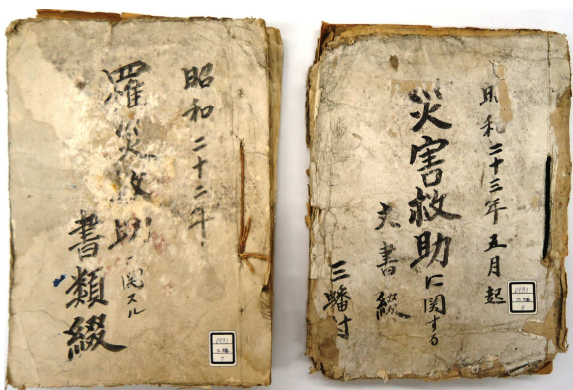 昭和二十二年
羅災救助ニ関スル
書類綴
昭和二十三年五月起
災害救助に関する
文書綴
三蟠村